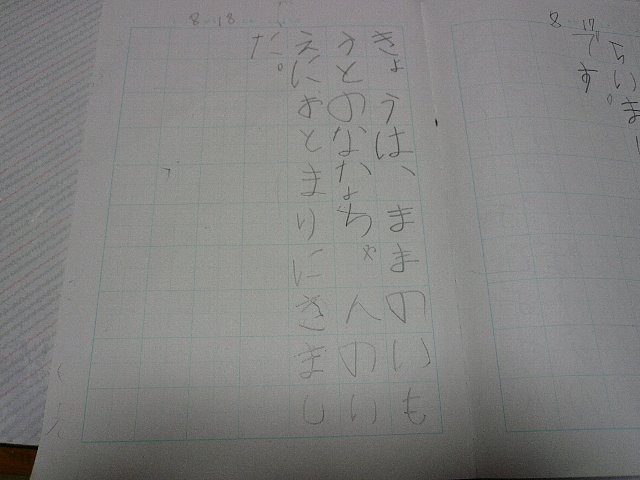 8 17
らいまし
です。
8 18
きょうは、ままのいも
うとのなかよちゃんのい
えにおとまりにきまし
た。